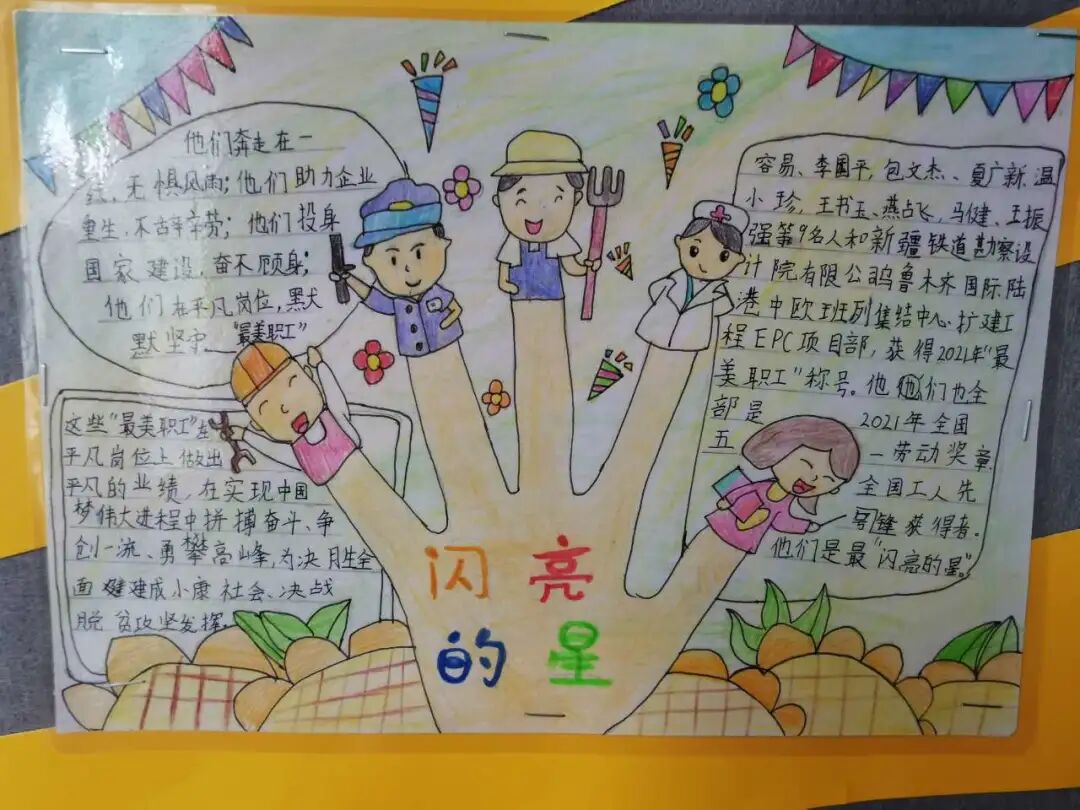 他们奔走在一
线，无惧风雨；他们助力企业
重生，不辞辛劳；他们投身
国家建设，奋不顾身；
他们在平凡岗位，默
默坚守 "最美职工"
这些"最美职工"在
平凡岗位上做出
平凡的业绩，在实现中国
梦伟大进程中拼搏奋斗、争
创一流、勇攀高峰，为决月生全
面建成小康社会、决战
脱贫攻坚发挥。
闪亮
的星
容易、李国平，包文杰、夏广新、温
小珍，王书玉、燕占飞，马健、王振
强等9名人和新疆铁道勘察设
计院有限公鸟鲁木齐国际陆
港中欧班列集结中心扩建工
程EPC项目部，获得2021年"最
美职工"称号。他们也全
部是 2021年全国
五一劳动奖章
全国工人先
锋获得者。
他们是最"闪亮的星。"